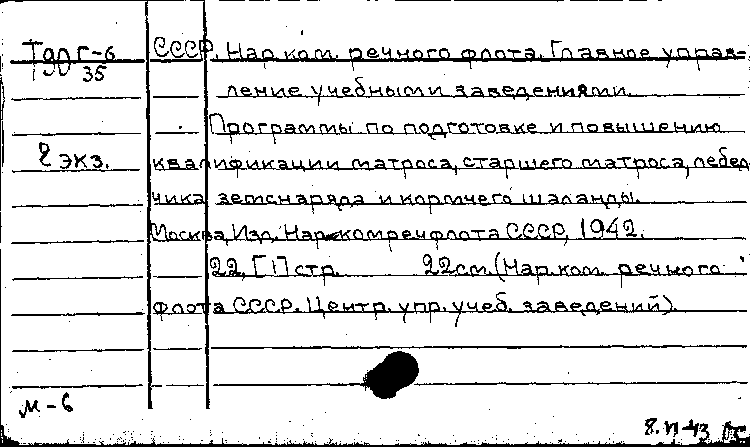 Т90 Г-6 СССР. Нар.ком. речного флота. Главное управ-
35
ление учебными заведениями.
Программы по подготовке и повышению
2 экз. квалификации матроса, старшего матроса, лебед
чика земснаряда и кормчего шаланды.
Москва, Изд. Нар-комречфлота СССР, 1942.
22, [1] стр. 22см. (Нар.ком. речного
флота СССР. Центр. упр. учеб. заведений).
м-6
8.VI-43